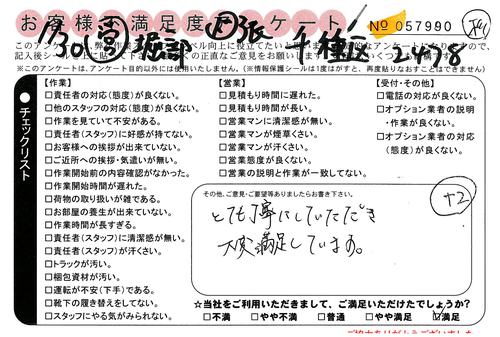 お客様不満足度アンケート
No 057990
1/30
堀部
千種区 2478
【作業】
□責任者の対応(態度)が良くない。
□他のスタッフの対応(態度)が良くない。
□作業を見ていて不安がある。
□責任者(スタッフ)に好感が持てない。
□お客様への挨拶が出来ていない。
□ご近所への挨拶・気遣いが無い。
□作業開始前の内容確認がなかった。
□作業開始時間が遅れた。
□荷物の取り扱いが雑である。
□お部屋の養生が出来ていない。
□作業時間が長すぎる。
□責任者(スタッフ)に清潔感が無い。
□責任者(スタッフ)が汗くさい。
□トラックが汚い。
□梱包資材が汚い。
□運転が不安(下手)である。
□靴下の履き替えをしてない。
□スタッフにやる気がみられない。
【営業】
□見積もり時間に遅れた。
□見積もり時間が長い。
□営業マンに清潔感が無い。
□営業マンが煙草くさい。
□営業マンが汗くさい。
□営業態度が良くない。
□営業の説明と作業が一致してない。
【受付・その他】
□電話の対応が良くない。
□オプション業者の説明
・作業が良くない。
□オプション業者の対応
(態度)が良くない。
●チェックリスト
その他、ご意見・ご要望等ありましたらお書き下さい。
+2
とても丁寧にしていただき
大変満足しています。
☆当社をご利用いただきまして、ご満足いただけたでしょうか?
□不満 □やや不満 □普通 □やや満足 ☑満足
ご協力ありがとうございました